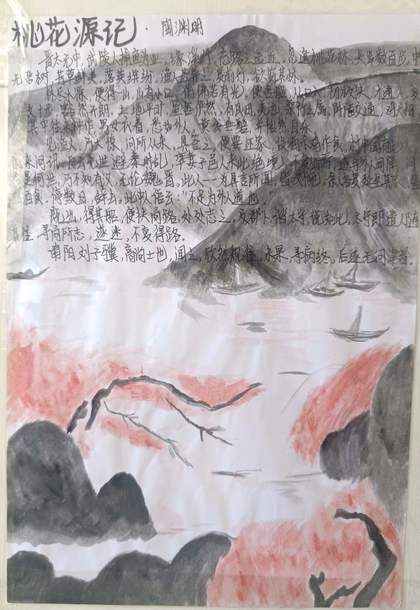 桃花源记·陶渊明
晋太元中，武陵人捕鱼为业，缘溪行，忘路之远近，忽逢桃花林，夹岸数百步，中
无杂树，芳草鲜美，落英缤纷，渔人甚异之，复前行，欲穷其林。
林尽水源，便得一山，山有小口，仿佛若有光，便舍船，从口入，初极狭，才通人，复
行数十步，豁然开朗，土地平旷，屋舍俨然，有良田，美池，桑竹之属，阡陌交通，鸡犬相
闻，其中往来种作，男女衣着，悉如外人，黄发垂髫，并怡然自乐。
见渔人，乃大惊，问所从来，具答之，便要还家，设酒杀鸡作食，村中闻有
此人，咸来问讯，自云先世避秦时乱，率妻子邑人来此绝境，不复出焉，遂与外人间隔
问今是何世，乃不知有汉，无论魏晋，此人一一为具言所闻，皆叹惋，余人各复延至其家
皆出酒食，停数日，辞去，此中人语云：“不足为外人道也
既出，得其船，便扶向路，处处志之，及郡下，诣太守，说如此，太守即遣人随
其往，寻向所志，遂迷，不复得路。
南阳刘子骥，高尚士也，闻之，欣然规往，未果，寻病终，后遂无问津者。